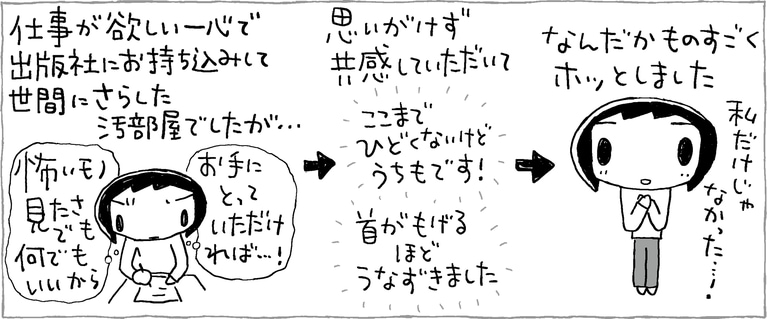 仕事が欲しい一心で
出版社にお持ち込みして
世間にさらした
汚部屋でしたが…
怖いモノ
見たさ
でも
何でも
いいから
お手に
とって
いただけ
れば…!
思いがけず
共感していただいて
ここまで
ひどくないけど
うちもです!
首がもげる
ほど
うなずきました
なんだかものすごく
ホッとしました
私だけじゃ
なかった…!